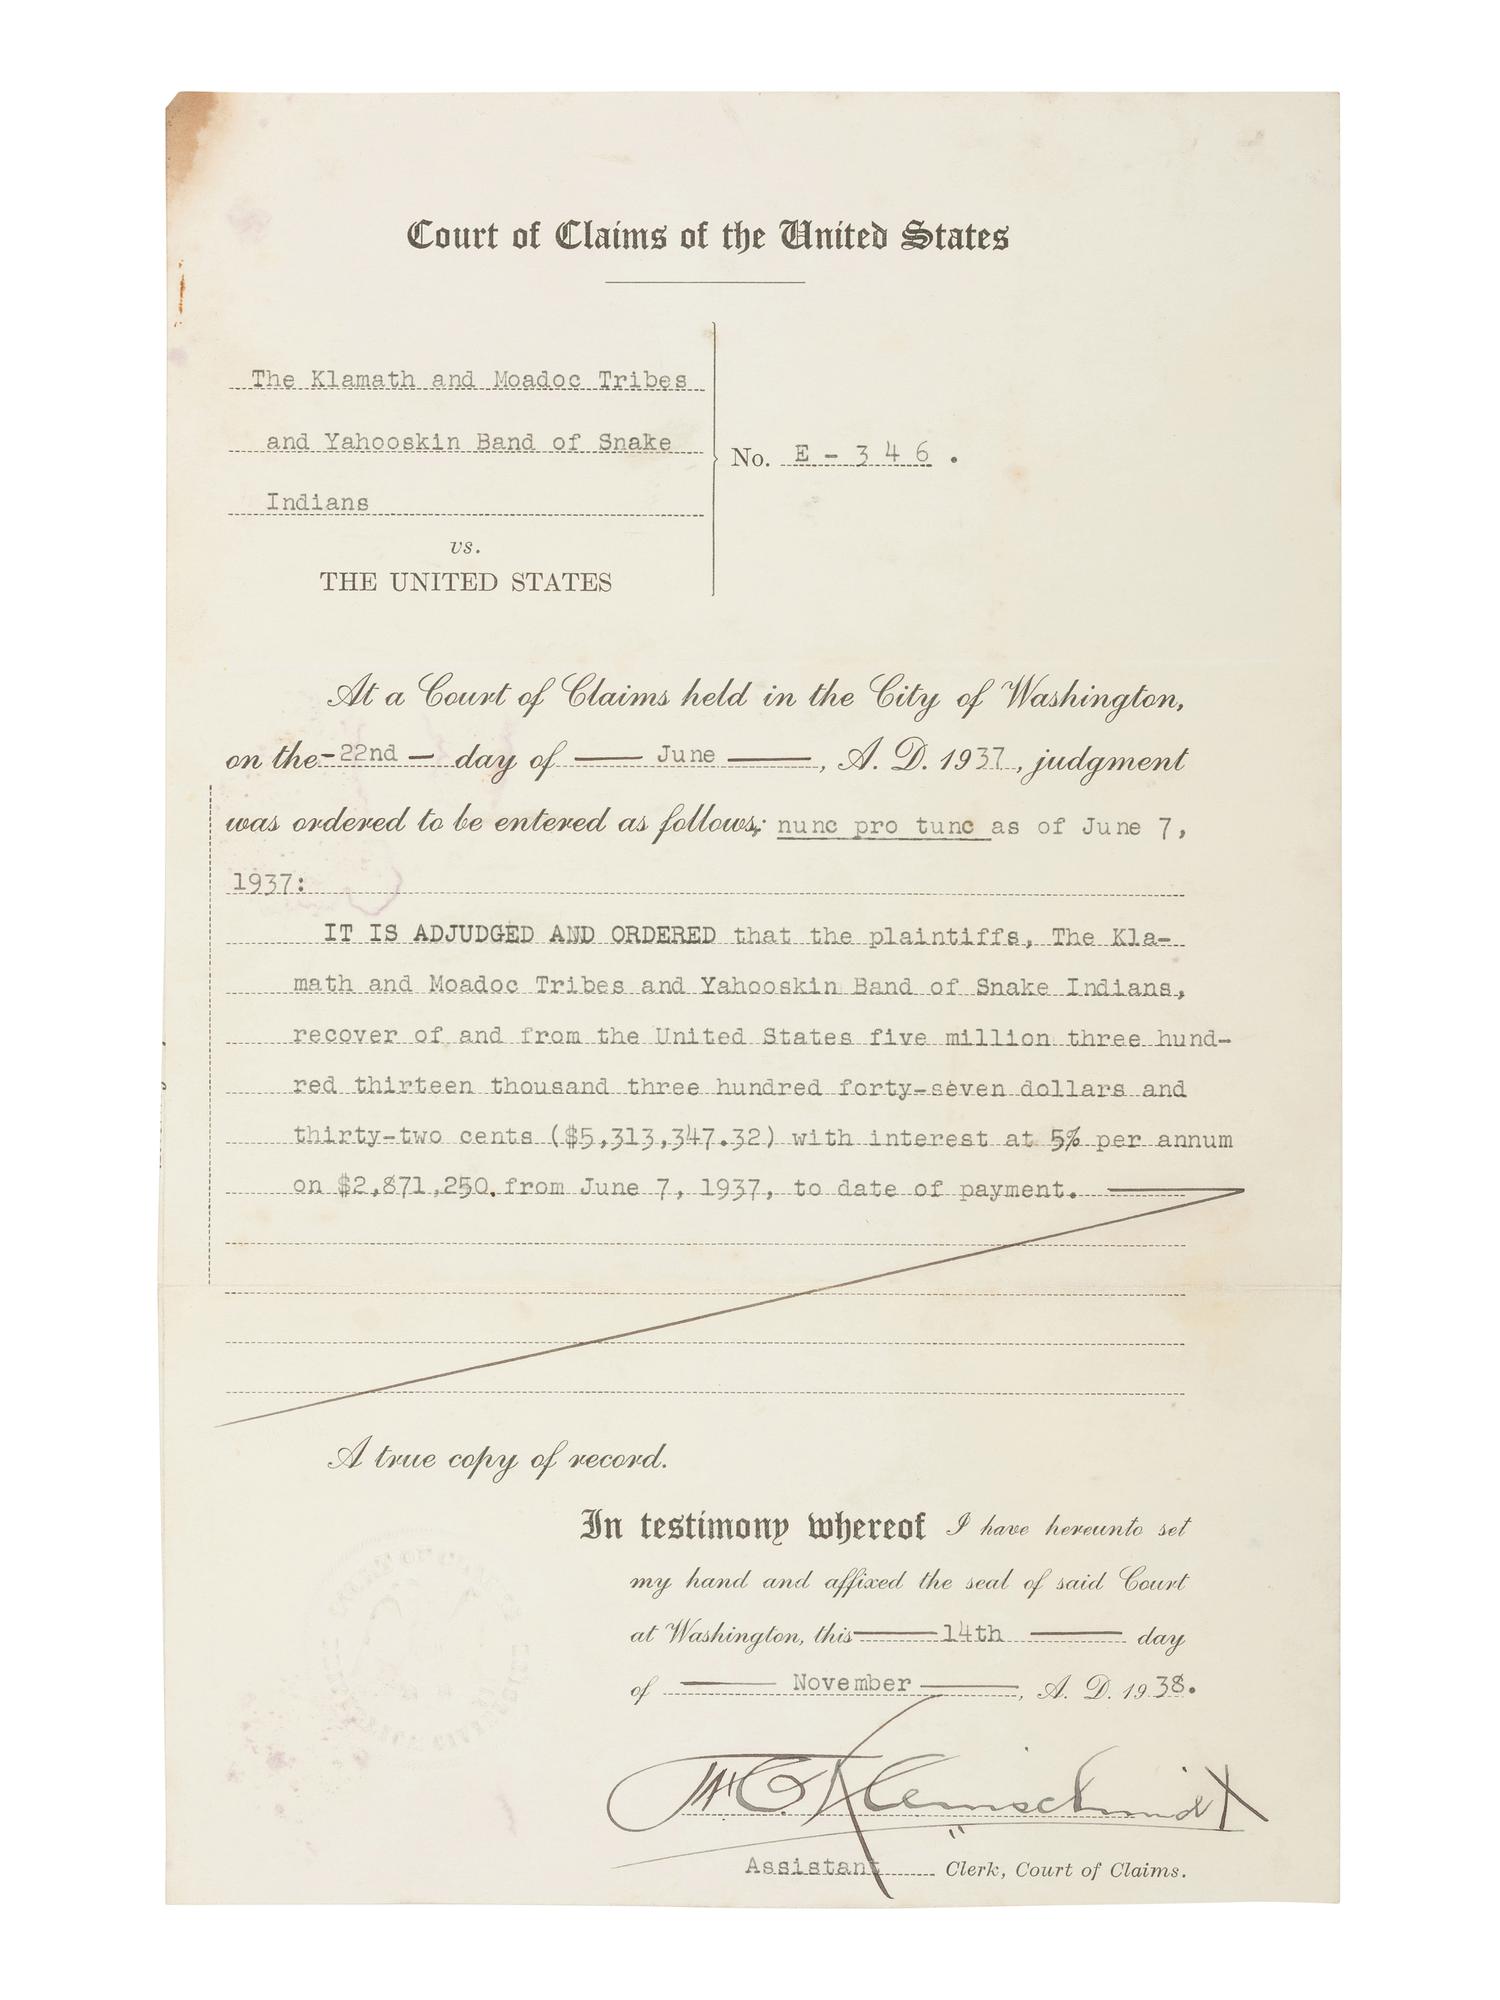 Court of Claims of the United States
The Klamath and Moadoc Tribes
and Yahooskin Band of Snake
Indians
vs.
THE UNITED STATES
No. E - 346.
At a Court of Claims held in the City of Washington,
on the - 22nd — day of — June —, A. D. 1937, judgment
was ordered to be entered as follows: nunc pro tunc as of June 7,
1937:
IT IS ADJUDGED AND ORDERED that the plaintiffs, The Kla-
math and Moadoc Tribes and Yahooskin Band of Snake Indians,
recover of and from the United States five million three hund-
red thirteen thousand three hundred forty-seven dollars and
thirty-two cents ($5,313,347.32) with interest at 5% per annum
on $2,871,250. from June 7, 1937, to date of payment. —
A true copy of record.
In testimony whereof I have hereunto set
my hand and affixed the seal of said Court
at Washington, this — 14th — day
of — November —, A. D. 1938.
Kleinschmidt
Assistant Clerk, Court of Claims.